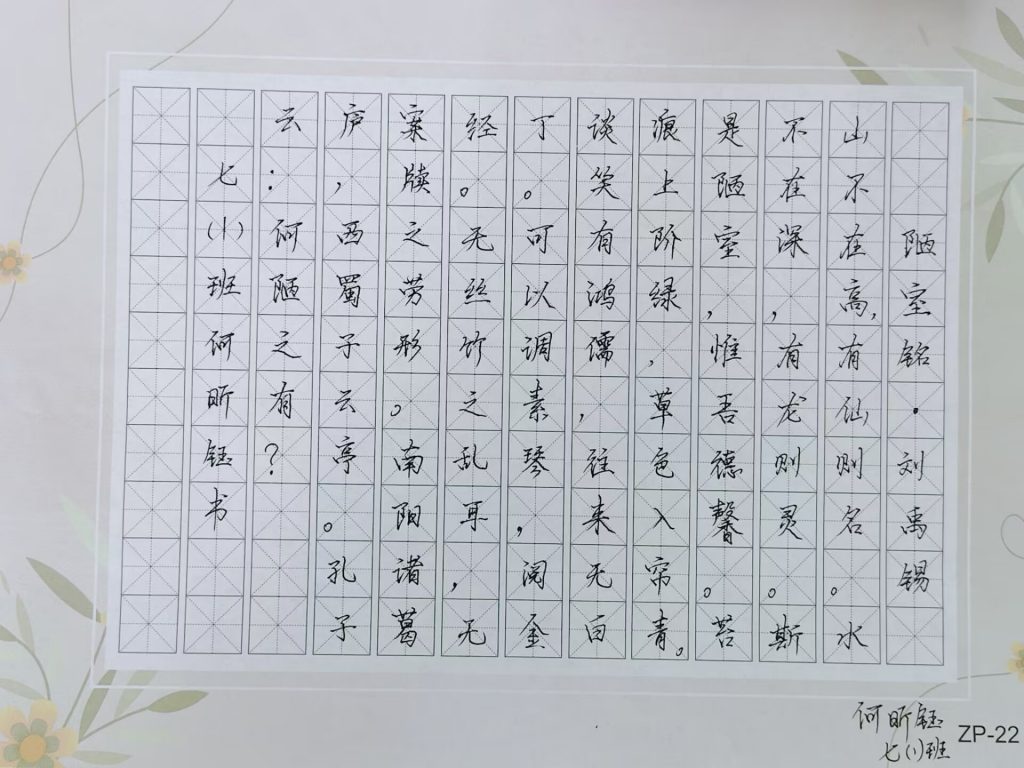 陋室铭·刘禹锡
山不在高，有仙则名。水
不在深，有龙则灵。斯
是陋室，惟吾德馨。苔
痕上阶绿，草色入帘青。
谈笑有鸿儒，往来无白
丁。可以调素琴，阅金
经。无丝竹之乱耳，无
案牍之劳形。南阳诸葛
庐，西蜀子云亭。孔子
云：何陋之有？
七(1)班何昕钰书
何昕钰
七(1)班
ZP-22